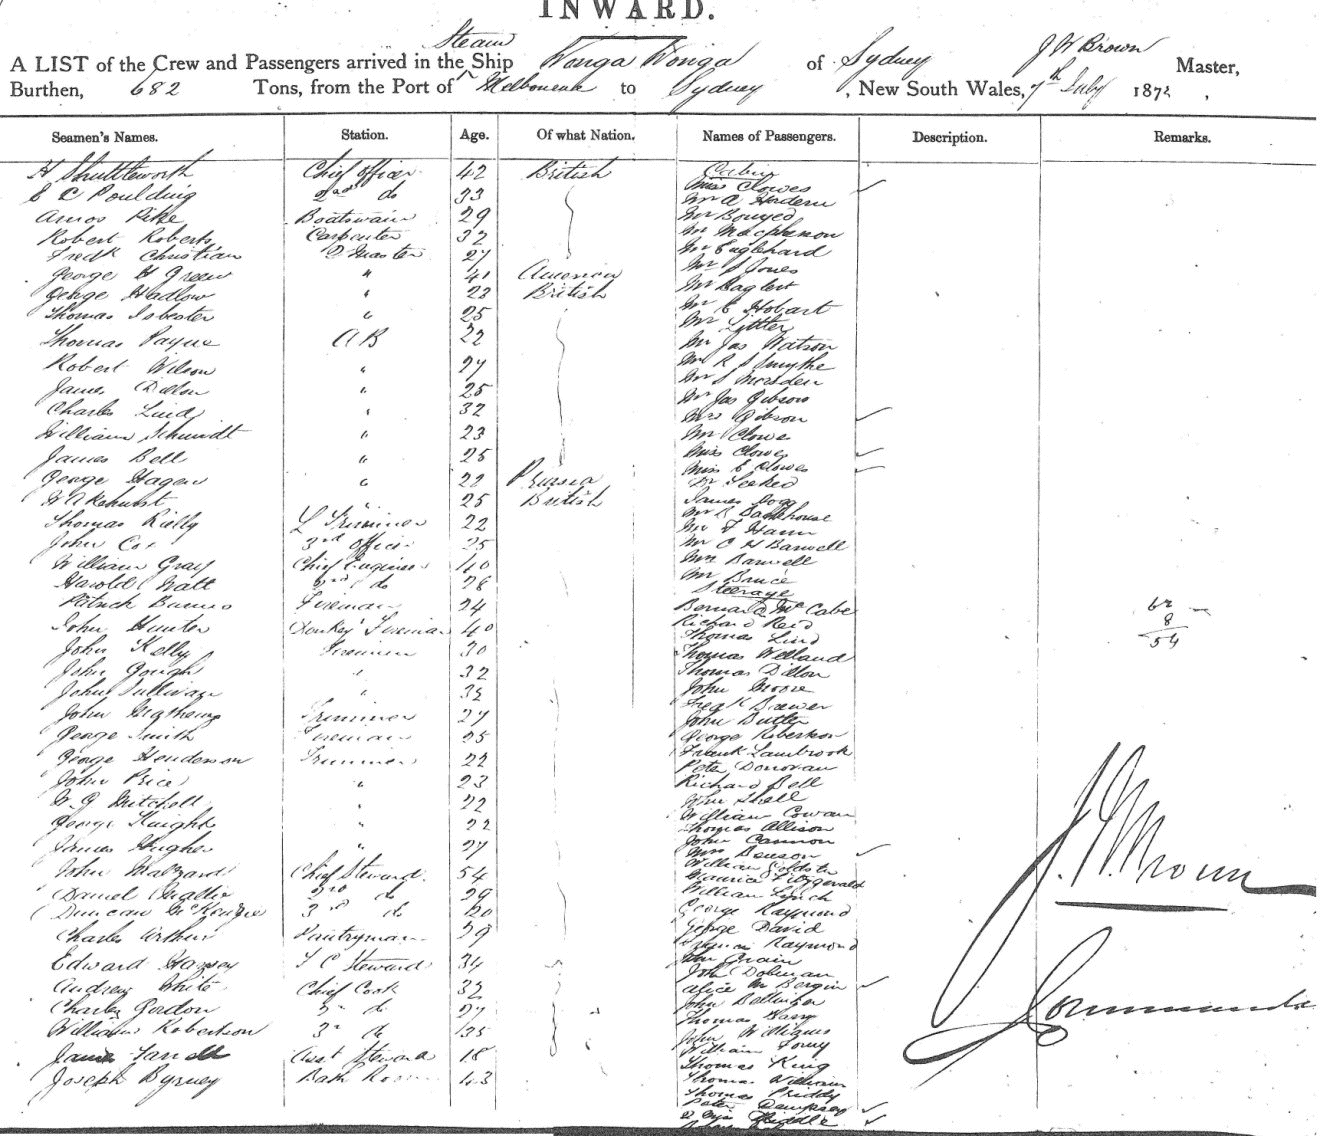 INWARD.
Steam
A LIST of the Crew and Passengers arrived in the Ship Wonga Wonga of Sydney J W Brown Master,
Burthen, 682 Tons, from the Port of Melbourne to Sydney, New South Wales, 7th July 1872,
Seamen's Names. Station. Age. Of what Nation. Names of Passengers. Description. Remarks.
H Shuttleworth Chief Officer 42 British
E C Poulding 2nd do 33
Amos Pike Boatswain 29
Robert Roberts Carpenter 32
Fredk Christian Q Master 27
George H Green " 41 American
George Hadlow " 22 British
Thomas Isbester " 25
Thomas Payne AB 22
Robert Wilson " 27
James Dillon " 25
Charles Lind " 32
William Schmidt " 23
James Bell " 25
George Hagen " 22 Prussia
Akehurst " 25 British
Thomas Rielly Trimmer 22
John Cox 3rd Officer 25
William Gray Chief Engineer 40
Harold Watt 3rd do 28
Patrick Barnes Fireman 24
John Hunter Donkey Fireman 40
John Kelly Fireman 30
John Gough " 32
John Sullivan " 32
John Mathews Trimmer 27
George Smith Fireman 25
George Henderson Trimmer 22
John Price " 23
W G Mitchell " 22
George Knight " 22
James Hughes " 27
John Chief Steward 54
Daniel 2nd do 29
Duncan McKenzie 3rd do 20
Charles Arthur Pantryman 29
Edward Harvey F C Steward 34
Andrew White Chief Cook 32
Charles Gordon 2nd do 27
William Robertson 3rd do 35
James Asst Steward 18
Joseph Byrney Bath Room 43
Cabin
Miss Clowes
Mr A Hordern
Mr Bouyed
Mr Macpherson
Mr Englehard
Mr S Jones
Mr Baglert
Mr C Hobart
Mr Littler
Mr Jas Watson
Mr R S Smythe
Mr S Marsden
Mr Jas Gibson
Mrs Gibson
Mr Clowes
Miss Clowes
Miss E Clowes
James Hogg
Mr F Hann
Mr C H Barwell
Mrs Barwell
Mr Bruce
Steerage
Bernard McCabe
Richard Reid
Thomas Lind
Thomas Welland
Thomas Dillon
John Moore
Fredk Brewer
John Butler
George Robertson
Frank Lambrook
Peter Donovan
Richard Bell
Wm Shell
William Cowan
Thomas Allison
John Cannon
Mrs Benson
William Goldstein
Maurice Fitzgerald
William Lynch
George Raymond
George David
Raymond
John Crain
John Dolman
Alice M Bergin
John
Thomas Harry
John Williams
William
Thomas King
Thomas William
Thomas Phiddy
Peter Dempsey
62
8
54
J W Brown
Commander